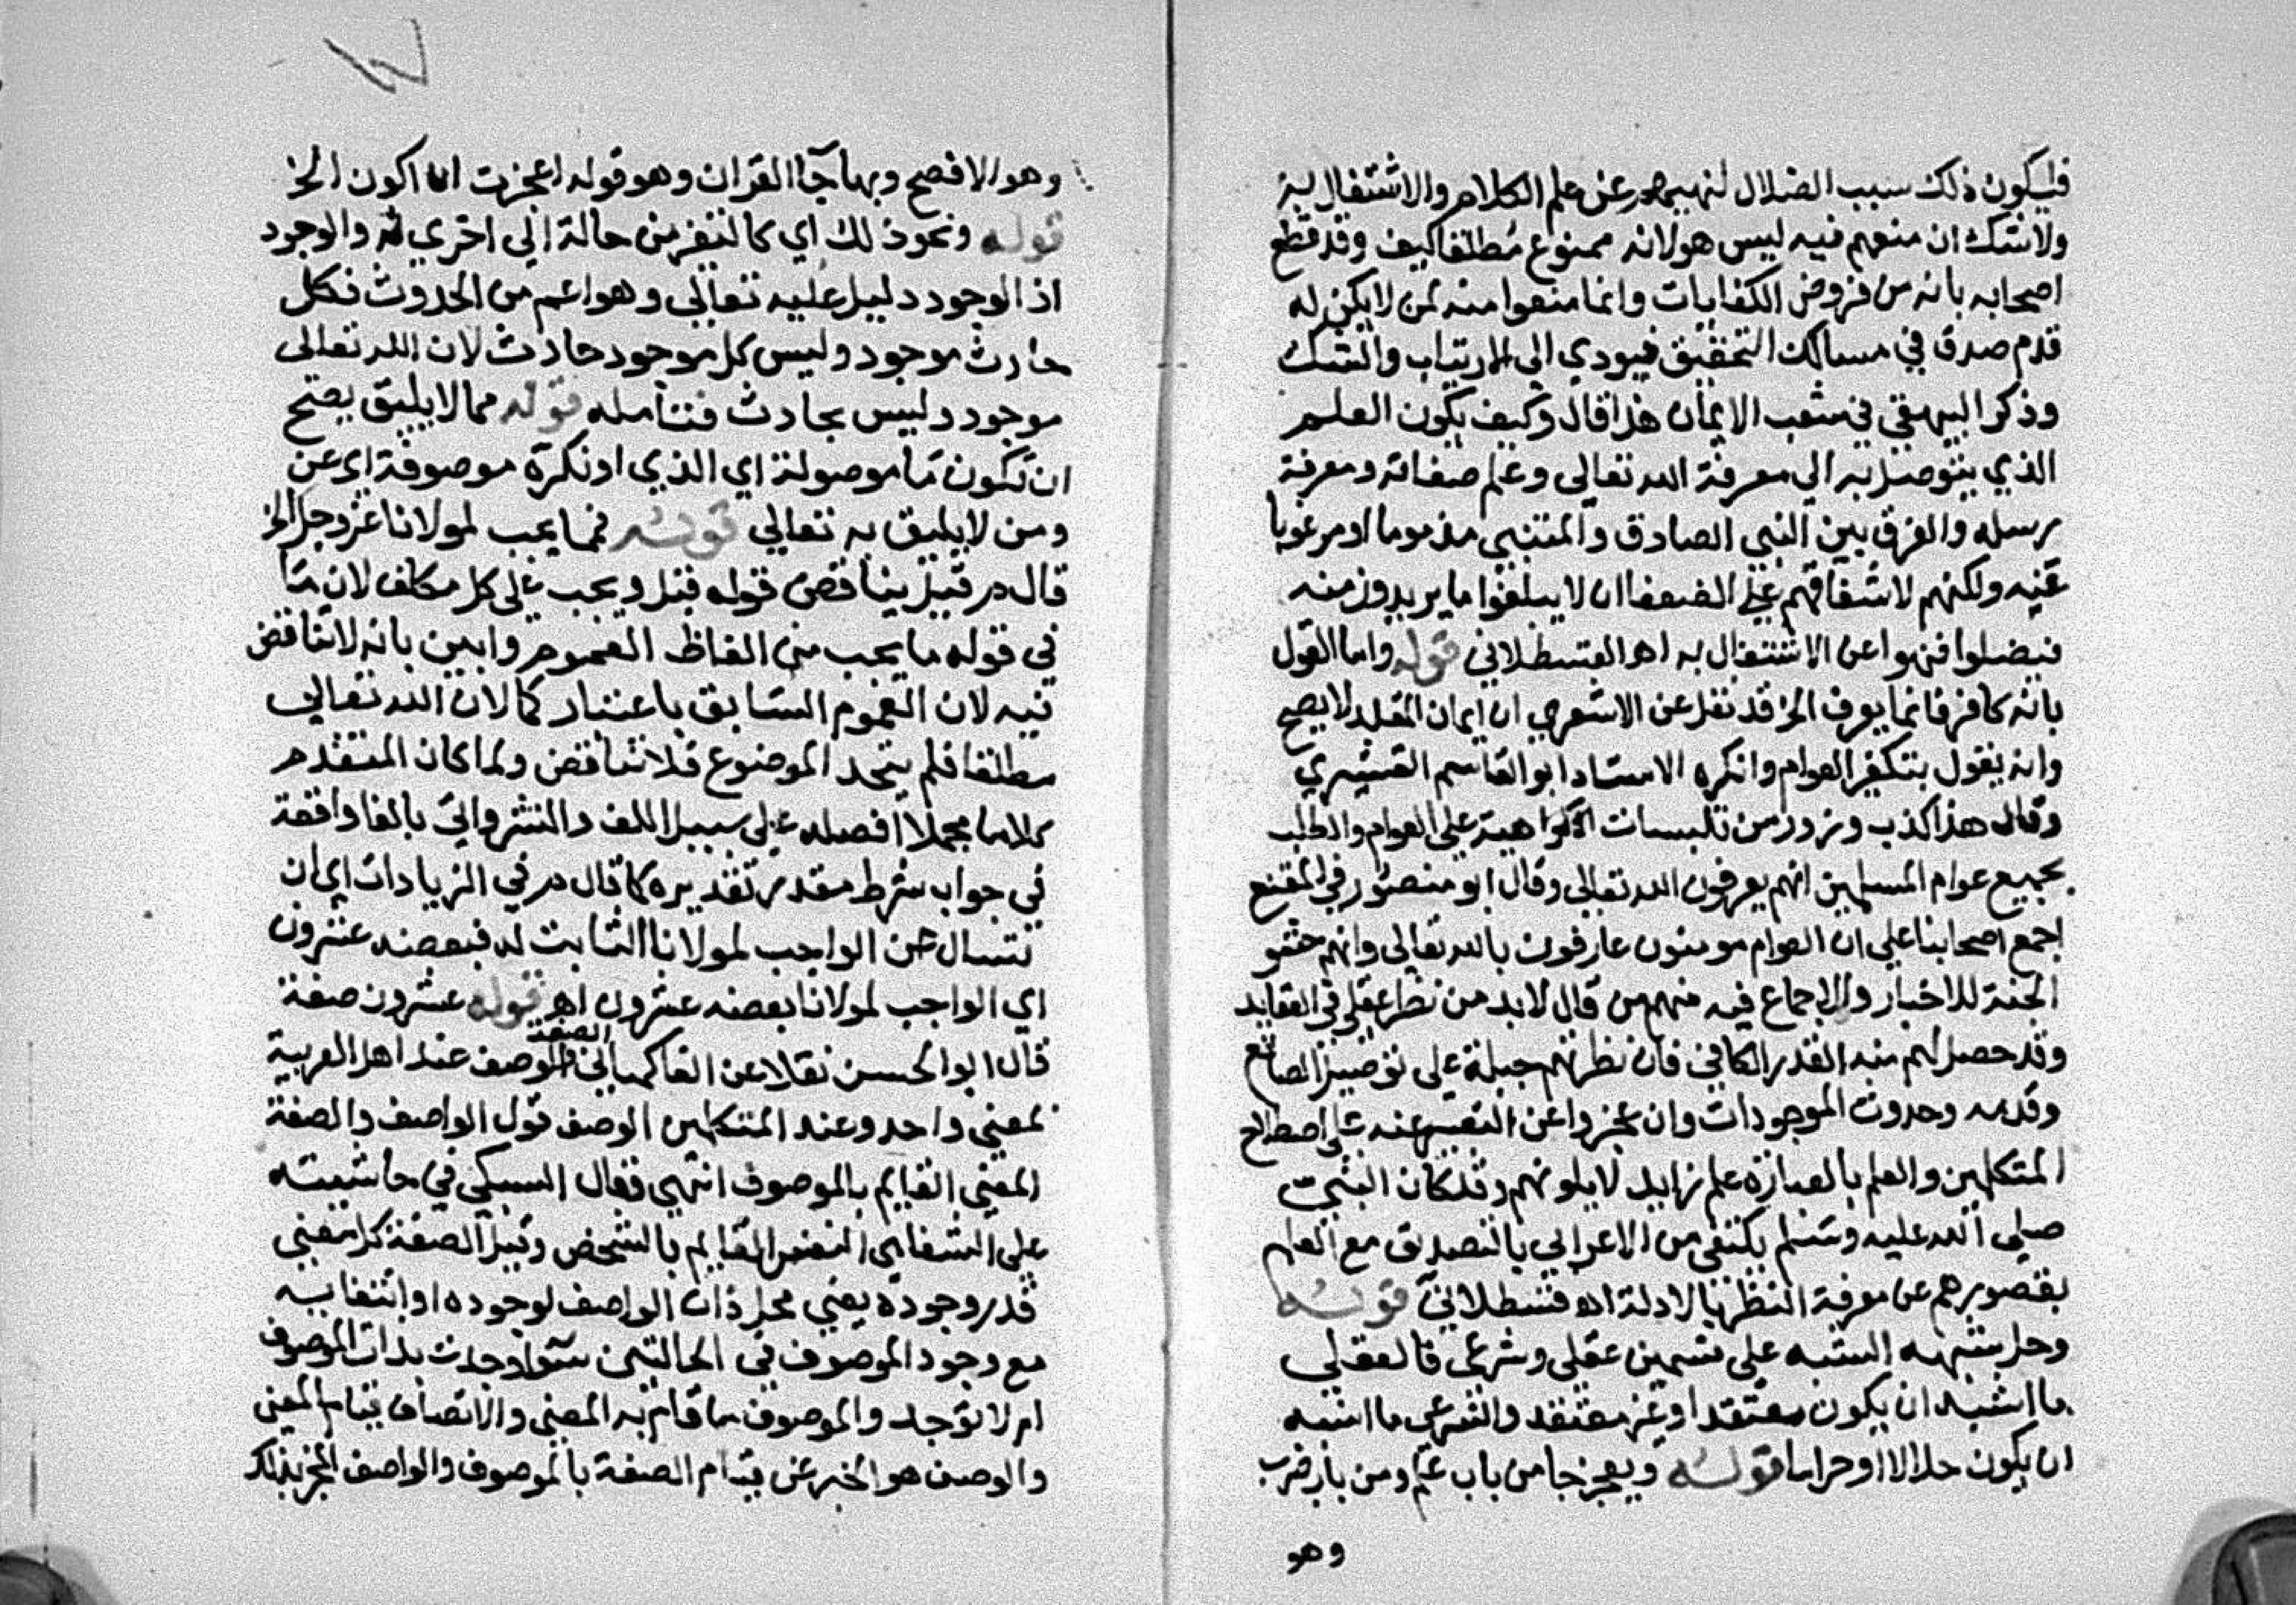 فيكون ذلك سبب الضلال لنهيهم عن علم الكلام والاشتغال به
ولا شك ان منعهم فيه ليس هو لانه ممنوع مطلقا كيف وقد قطع
اصحابه بانه من فروض الكفايات وانما منعوا منه لمن لا يكن له
قدم صدق في مسالك التحقيق فيودي الى الارتياب والشك
وذكر البيهقي في شعب الايمان هذا قال وكيف يكون العلم
الذي يتوصل به الي معرفة الله تعالى وعلم صفاته ومعرفة
رسله والفرق بين النبي الصادق والمتنبي مذموما او مرغوبا
عنه ولكنهم لاشفاقهم علي الضعفا ان لا يبلغوا ما يريدون منه
فيضلوا فنهوا عن الاشتغال به اهـ القسطلاني قوله واما القول
بانه كافر فانما يعرف الخ قد نقل عن الاشعري ان ايمان المقلد لا يصح
وانه يقول بتكفير العوام وانكره الاستاد ابو القاسم القشيري
وقال هذا كذب وزور من تلبيسات الكرامية على العوام والطلب
بجميع عوام المسلمين انهم يعرفون الله تعالى وقال ابو منصور في المقنع
اجمع اصحابنا على ان العوام مومنون عارفون بالله تعالى وانهم حشو
الجنة للاخبار والاجماع فيه منهم من قال لا بد من نظر عقلي في العقايد
وقد حصل لهم منه القدر الكافي فان نظرتهم جبلة على توحيد الصانع
وقدمه وحدوث الموجودات وان عجزوا عن التعبير عنه على اصطلاح
المتكلمين والعلم بالعبارة علم زايد لا يلزمهم وقد كان النبي
صلى الله عليه وسلم يكتفي من الاعرابي بالتصديق مع العلم
بقصورهم عن معرفة النظر بالادلة اهـ قسطلاني قوله
وحل شبهه الشبه على قسمين عقلي وشرعي فالعقلي
ما اشبه ان يكون معتقدا او غير معتقد والشرعي ما اشبه
ان يكون حلالا او حراما قوله ويعجز جا من باب علم ومن باب ضرب
وهو
وهو الافصح وبها جآ القران وهو قوله اعجزت ان اكون الخ
قوله ونحو ذلك اي كالتغير من حالة الي اخري والوجود
اذ الوجود دليل عليه تعالي وهو اعم من الحدوث فكل
حادث موجود وليس كل موجود حادث لان الله تعالى
موجود وليس بحادث فتامله قوله مما لا يليق يصح
ان تكون ما موصولة اي الذي او نكرة موصوفة اي عن
ومن لا يليق به تعالي قوله فمما يجب لمولانا عز وجل الخ
قال م ر قيل يناقض قوله قبل ويجب على كل مكلف لان ما
في قوله ما يجب من الفاظ العموم واجيب بانه لا تناقض
فيه لان العموم السابق باعتبار كمالات الله تعالي
مطلقا فلم يتحد الموضوع فلا تناقض ولما كان المتقدم
كلاما مجملا افصله على سبيل اللف والنشر واتي بالفا واقعة
في جواب شرط مقدر تقديره كما قال م ر في الزيادات اي ان
تسال عن الواجب لمولانا الثابت له فبعضه عشرون
اي الواجب لمولانا بعضه عشرون اهـ قوله عشرون صفة
قال ابو الحسن نقلا عن الفاكهاني الصفة والوصف عند اهل العربية
لمعني واحد وعند المتكلمين الوصف قول الواصف والصفة
المعني القايم بالموصوف انتهي فقال السبكي في حاشيته
على الشفا هي المعني القايم بالشخص وقيل الصفة كل معني
قدر وجوده يعني محل ذات الواصف لوجوده او انتفايه
مع وجود الموصوف في الحالتين سوا وجدت بذات الموصوف
ام لا توجد والموصوف ما قام به المعني والاتصاف قيام المعني
والوصف هو الخبر عن قيام الصفة بالموصوف والواصف المخبر بذلك